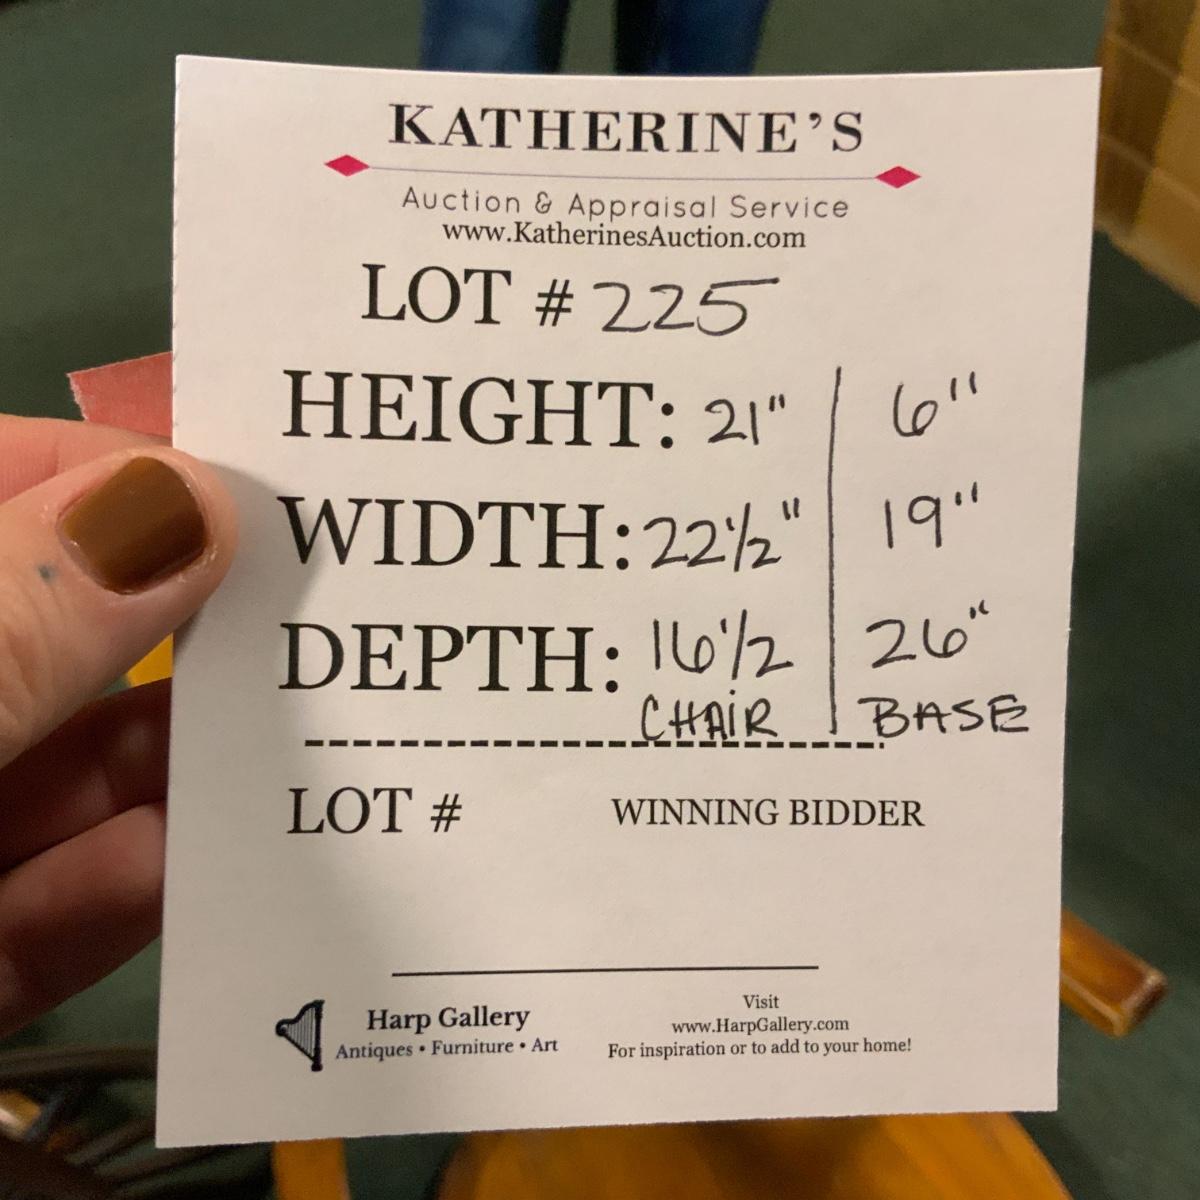 KATHERINE'S
Auction & Appraisal Service
www.KatherinesAuction.com
LOT # 225
HEIGHT: 21" 6"
WIDTH: 22 1/2" 19"
DEPTH: 16 1/2 26"
CHAIR BASE
LOT # WINNING BIDDER
Harp Gallery
Antiques • Furniture • Art
Visit
www.HarpGallery.com
For inspiration or to add to your home!